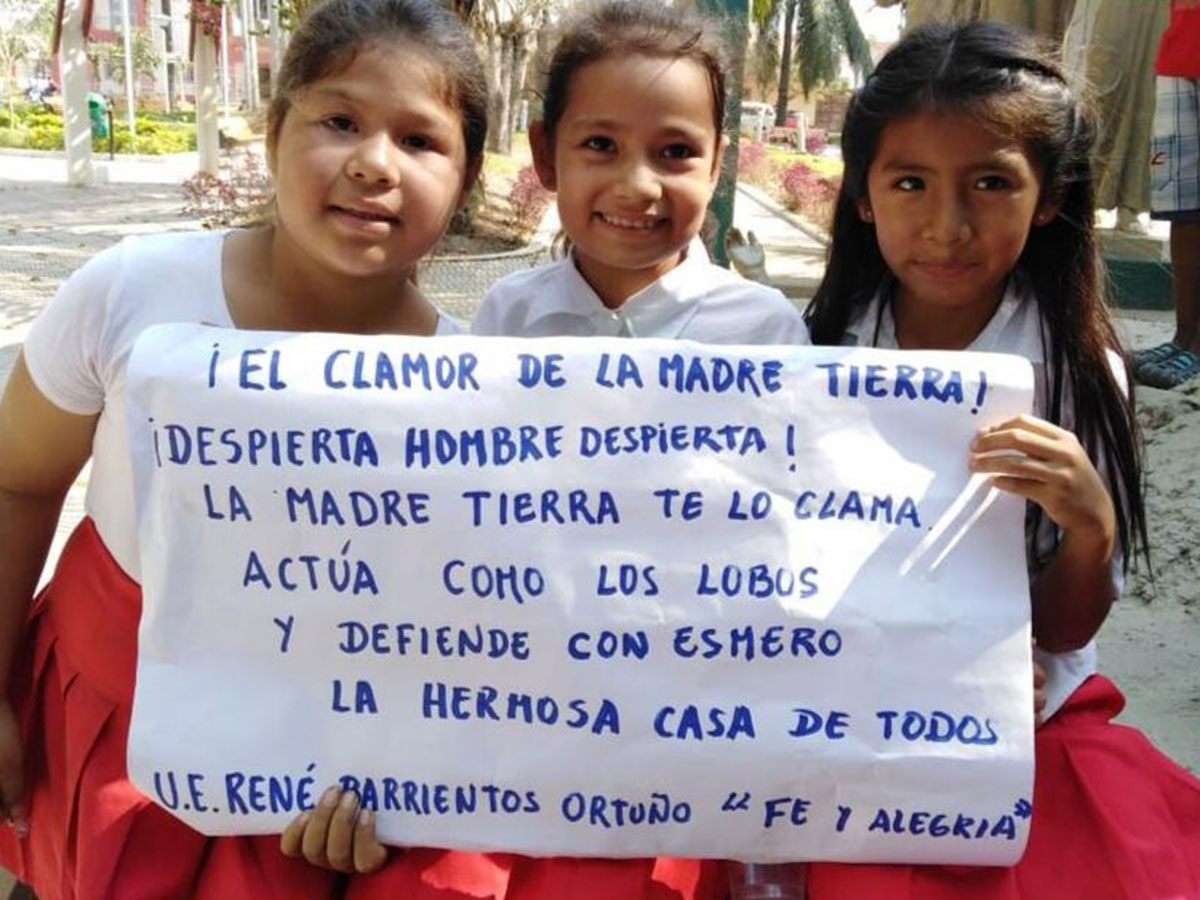 ¡EL CLAMOR DE LA MADRE TIERRA!
¡DESPIERTA HOMBRE DESPIERTA!
LA MADRE TIERRA TE LO CLAMA.
ACTÚA COMO LOS LOBOS
Y DEFIENDE CON ESMERO
LA HERMOSA CASA DE TODOS
U.E. RENÉ BARRIENTOS ORTUÑO "FE Y ALEGRIA"